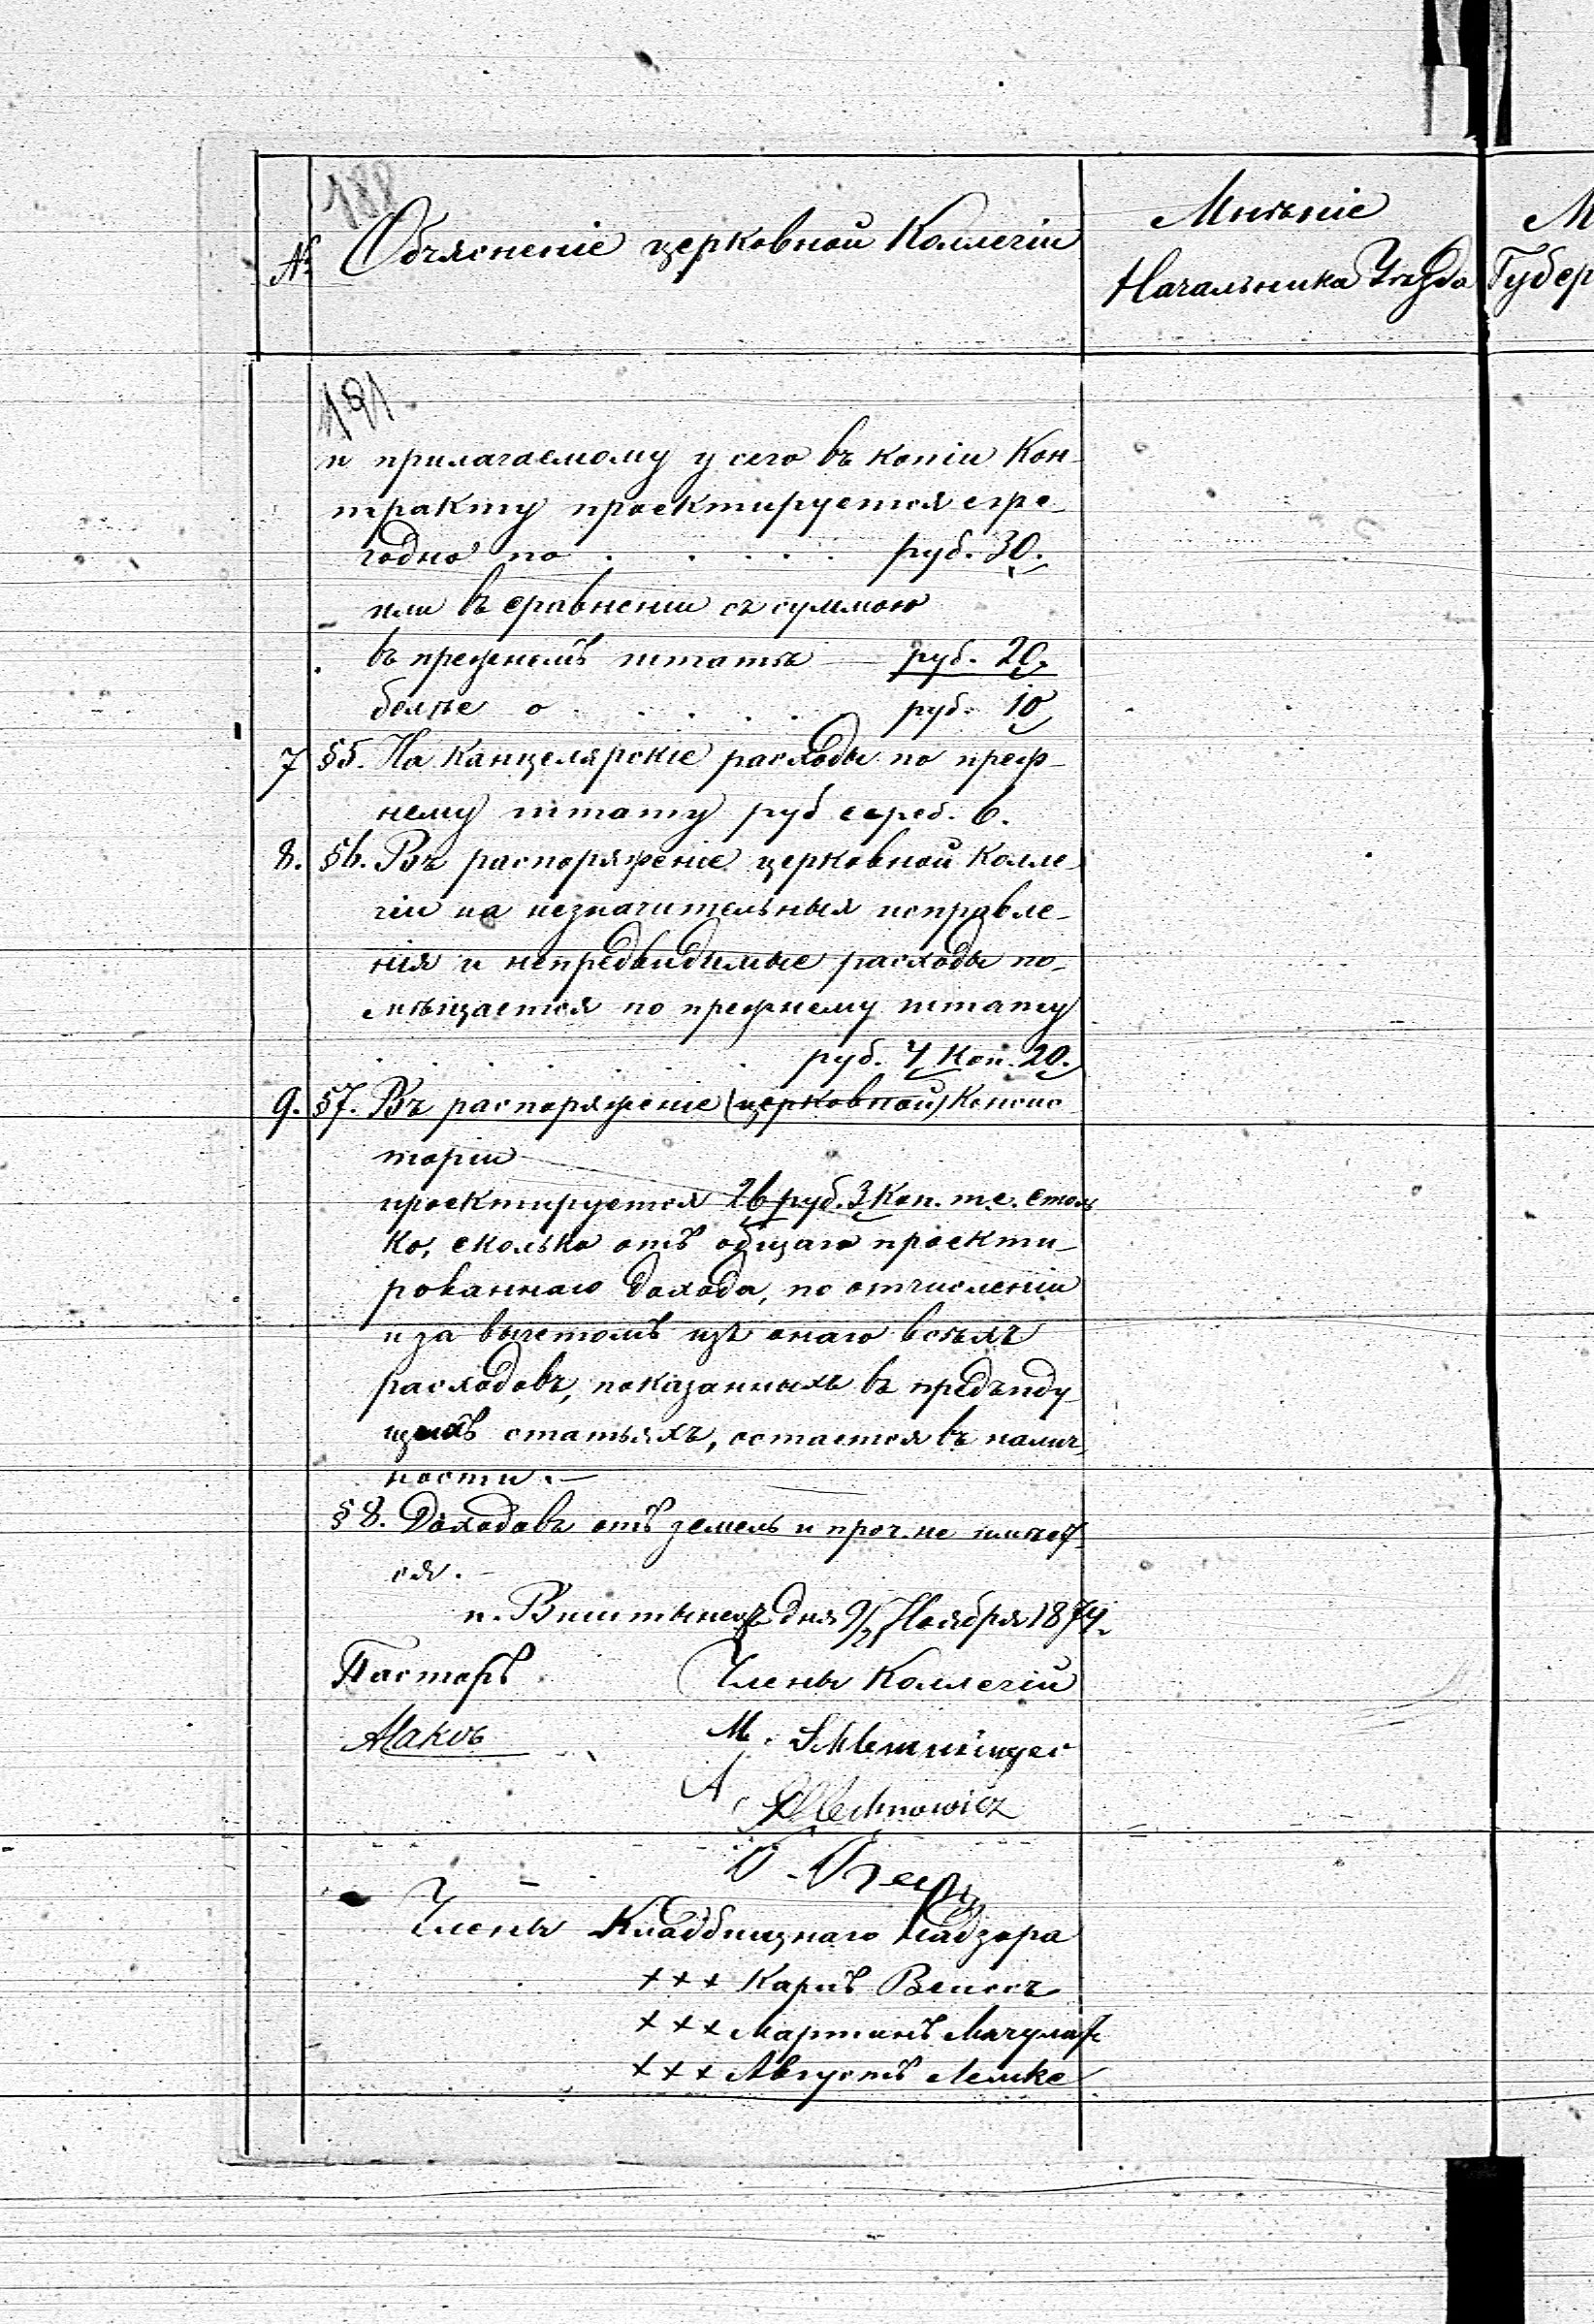 188
№
Объясненіе церковной Коллегіи
Мнѣніе
Начальника Уѣзда
М
Губер
191
и прилагаемому у сего въ копіи Кон-
тракту проектируется еже-
годно по . . . . . руб. 30.
или въ сравненіи съ суммою
въ прежнемъ штатѣ — руб. 20.
болѣе о . . . . . руб. 10
7 §5. На Канцелярскіе расходы по преж-
нему штату руб сереб. 6.
8. §6. Въ распоряженіе церковной Колле
гіи на незначительныя исправле-
нія и непредвидимые расходы по-
мѣщается по прежнему штату
руб. 4 Коп. 20.
9. §7. Въ распоряженіе (церковной) Консис
торіи
проектируется 26 руб. 3 Коп. т.е. столь
ко, сколько отъ общаго проекти-
рованнаго дохода, по отчисленіи
и за вычетомъ изъ онаго всѣхъ
расходовъ, показанныхъ въ предъиду-
щихъ статьяхъ, остается въ налич-
ности.—
§8. Доходовъ отъ земель и проч. не имѣет-
ся.—
п. Виштынецъ дня 9/21 Ноября 1874.
Пасторъ
Члены Коллегіи
M. Schlemminger
A. Lechnowicz
Члены Кладбищнаго Надзора
+++ Карлъ Вейссъ
+++ Мартинъ
+++ Августъ Лемке